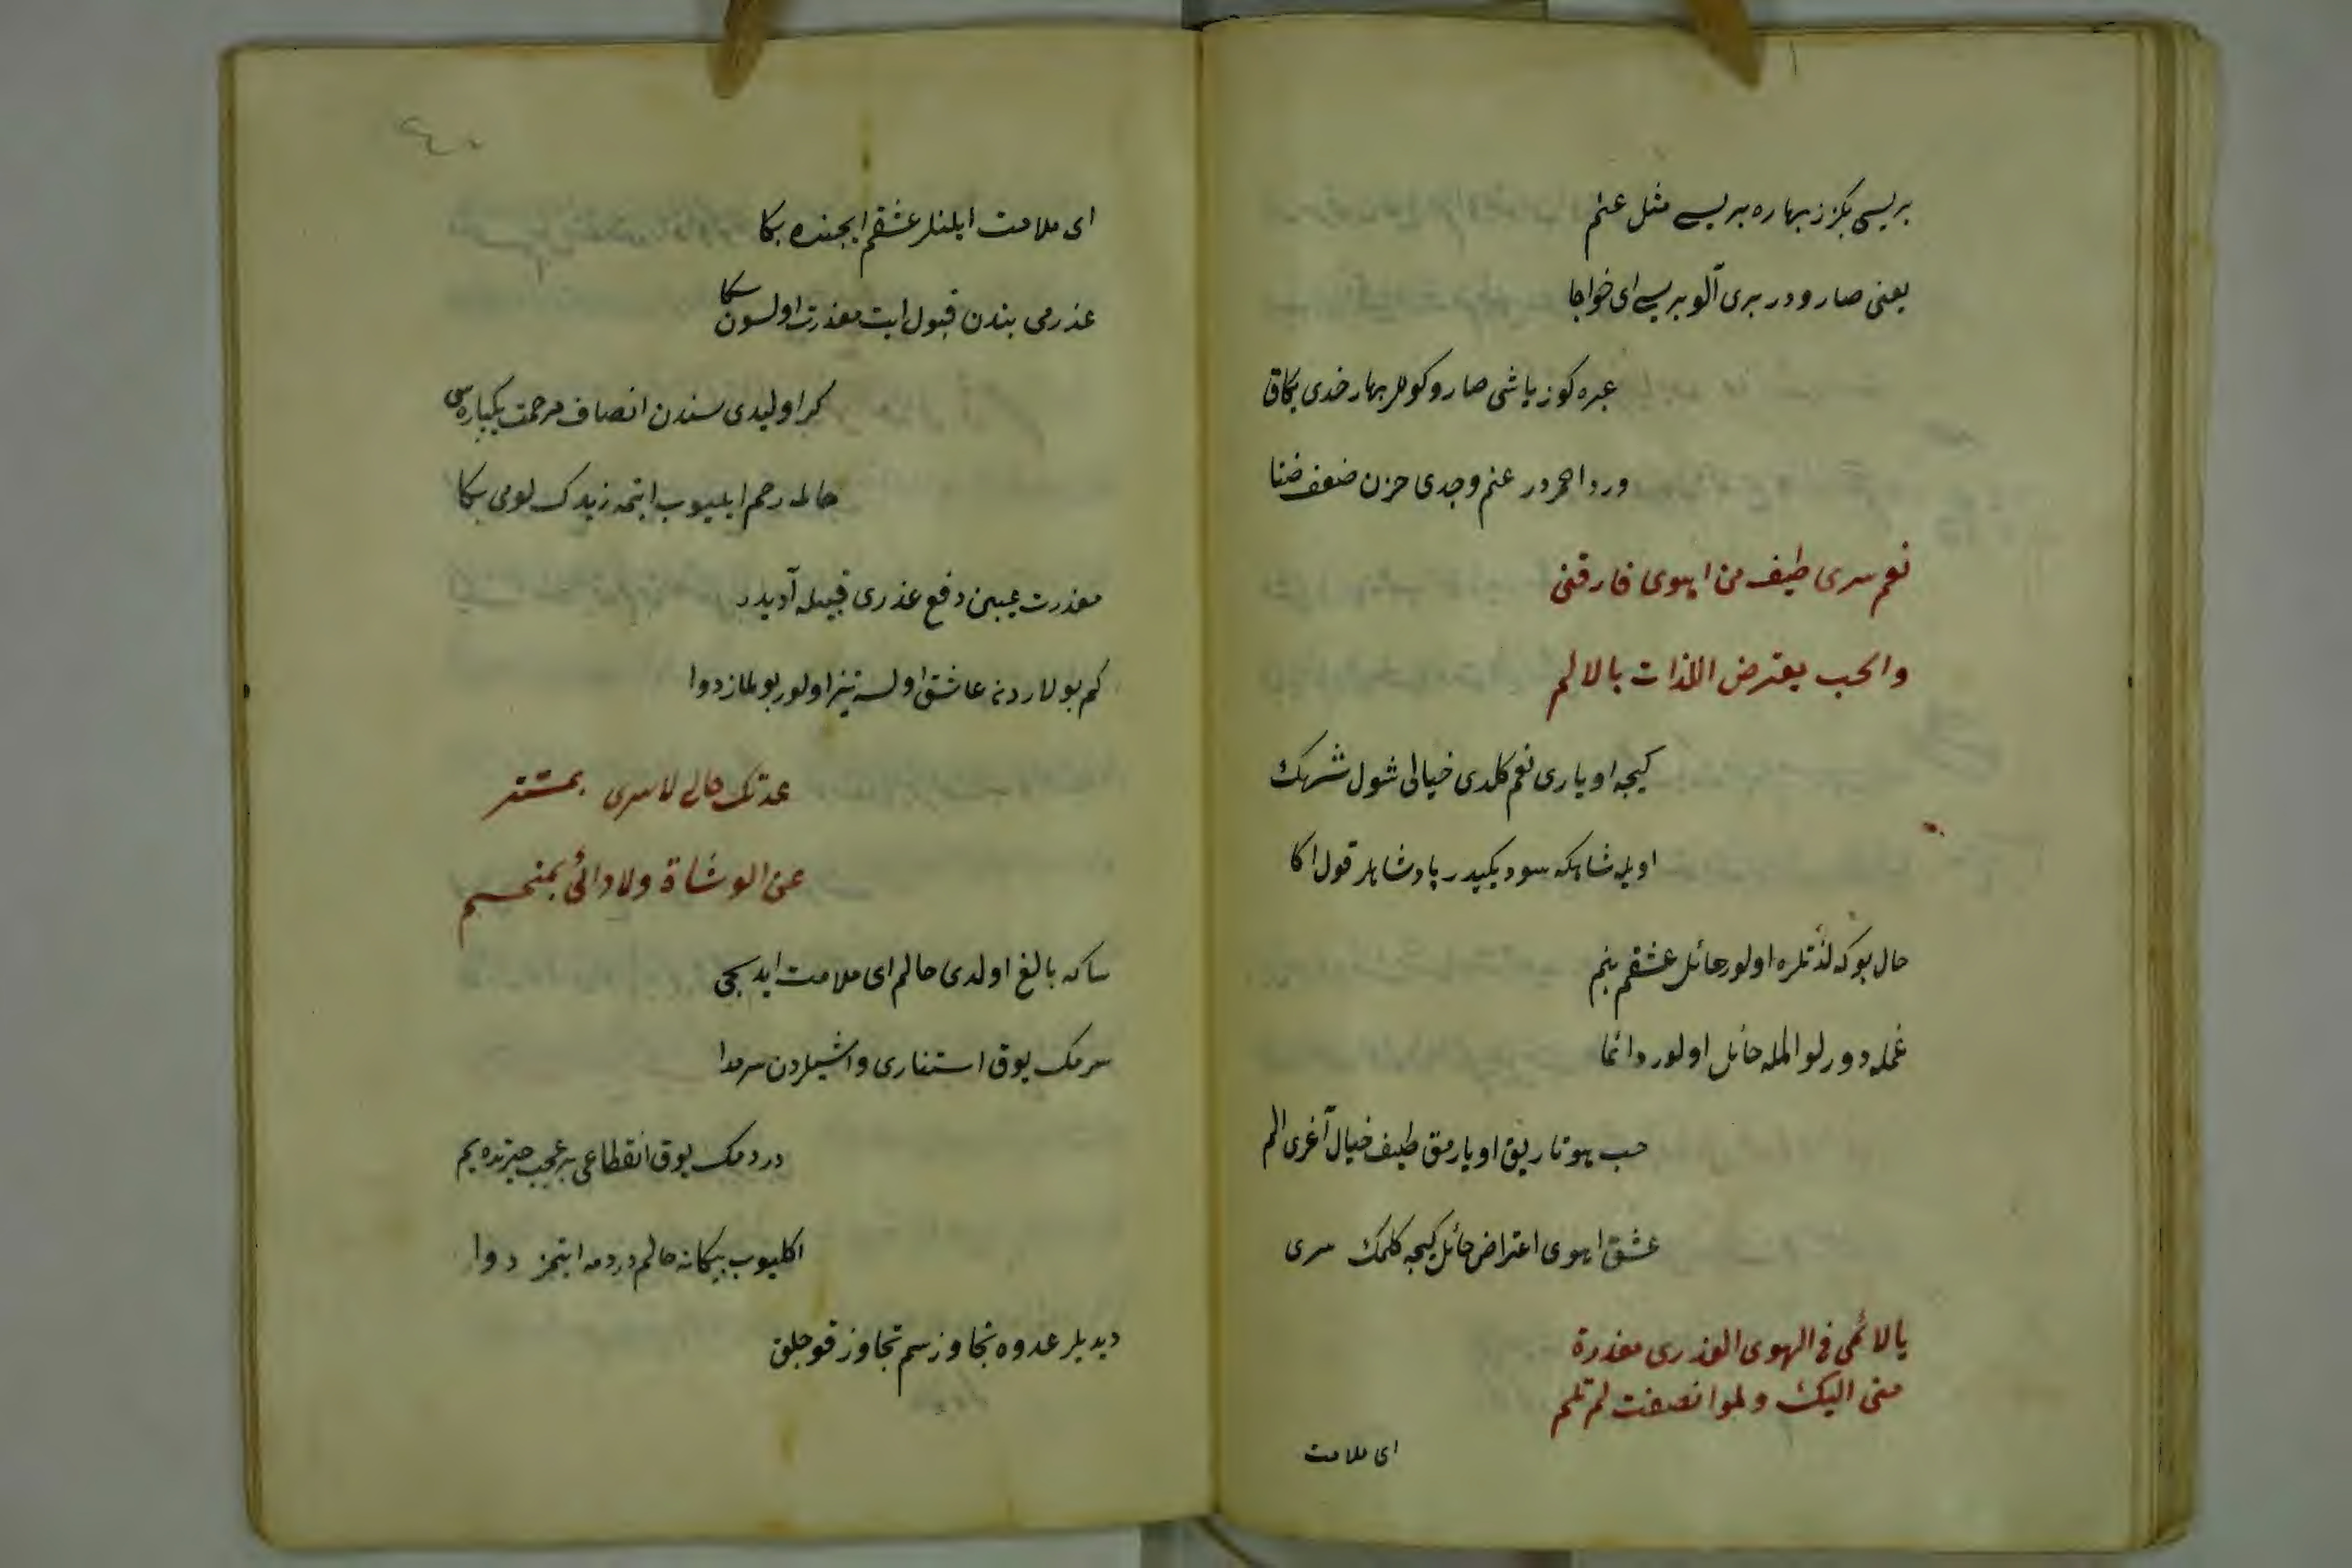 بریسی بكزر بهاره بریسی مثل عنم
یعنی صارودر بری آلو بریسی ای خواجا
عبره كوز یاشی صارو كوللر بهار خدی یكاق
ورد احمردر عنم وجدی حزن ضعف ضنا
نعم سری طیف من اهوی فارقنی
والحب یعترض اللذات بالالم
كیجه اویاری نعم كلدی خیالی شول شهك
اویله شاهكه سودیكیدر پادشاهلر قول اكا
حال بوكه لذتلره اولور حائل عشقم بنم
غمله دورلو المله حائل اولور دائما
حب هوتاریق اویارمق طیف خیال آغری الم
عشق اهوی اعتراض حائل كیجه كلمك سری
یا لائمی فی الهوی العذری معذرة
منی الیك ولو انصفت لم تلم
ای ملامت
ای ملامت ایلنلر عشقم ایچنده بكا
عذرمی بندن قبول ایت معذرت اولسون سكا
كر اولیدی سندن انصاف مرحمت یكباره سی
حالمه رحم ایلیوب ایتمه زیدك لومی بكا
معذرت عیبین دفع عذری قبیله آدیدر
كم بولاردنه عاشق اولسه تیز اولور بولماز دوا
عدتك حالی لا سری بمستتر
عن الوشاة ولا دائی بمنحسم
ساكه بالغ اولدی حالم ای ملامت ایدیجی
سرمك یوق استتاری واشیلردن سرمدا
دردمك یوق انقطاعی بر عجب حیرتده یم
اكلیوب بیكانه حالم دردمه ایتمز دوا
دیدیلر عدوه تجاوز سم تجاوز قوجلق